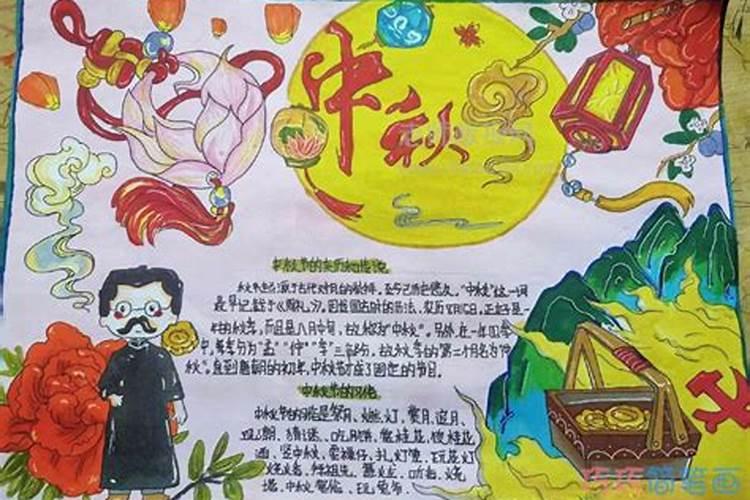 中秋
中秋节的来历和传说
中秋节起源于古代对月的崇拜,至今已历史悠久。"中秋"这一词
最早记载于《周礼》。因我国古时的历法,农历8月15日,正好是一
年的秋季,而且是八月中旬,故称"中秋"。另外在一年四季
中,每季分为"孟""仲""季"三部分,故秋季的第二个月名为"仲
秋"。直到唐朝的初年,中秋节才成了固定的节日。
中秋节的习俗
中秋节的习俗是祭月、燃灯、赏月、追月、
观潮、猜谜、吃月饼、赏桂花、饮桂花
酒、竖中秋、玩花灯
烧塔、拜祖先、
塔、中秋宴俗、玩兔爷。
简笔画